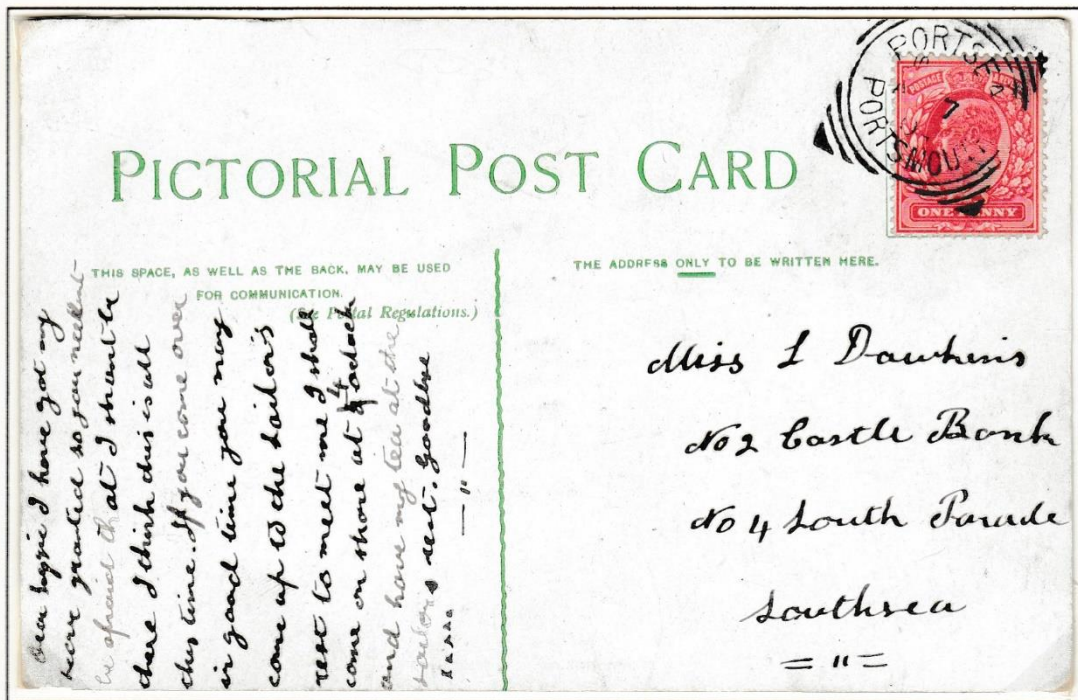 PICTORIAL POST CARD
THIS SPACE, AS WELL AS THE BACK, MAY BE USED
FOR COMMUNICATION.
(See Postal Regulations.)
THE ADDRESS ONLY TO BE WRITTEN HERE.
PORTSEA
7
PORTSMOUTH
POSTAGE
ONE PENNY
Dear I have got my
leave granted so you neednt
be afraid that I shant be
there I think this is all
this time. If you come over
in good time you may
come up to the sailors
rest to meet me I shall
come on shore at 4 oclock
and have my tea at the
sailors rest. Goodbye
— " —
Miss L Dawkins
No 2 Castle Bank
No 4 South Parade
Southsea
= " =